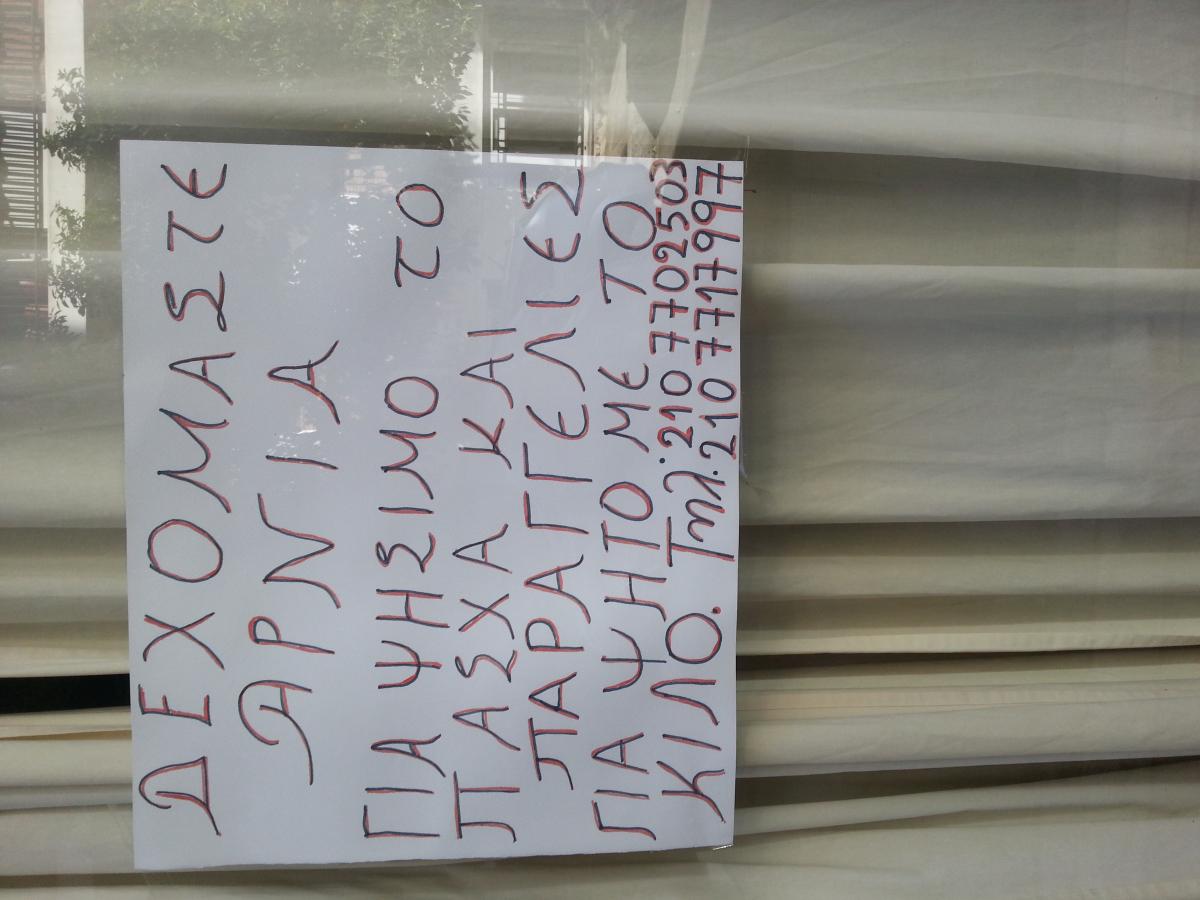 ΔΕΧΟΜΑΣΤΕ
ΑΡΝΙΑ
ΓΙΑ ΨΗΣΙΜΟ ΤΟ
ΠΑΣΧΑ ΚΑΙ
ΠΑΡΑΓΓΕΛΙΕΣ
ΓΙΑ ΨΗΤΟ ΜΕ ΤΟ
ΚΙΛΟ. Τηλ. 210 7702503
210 7717997